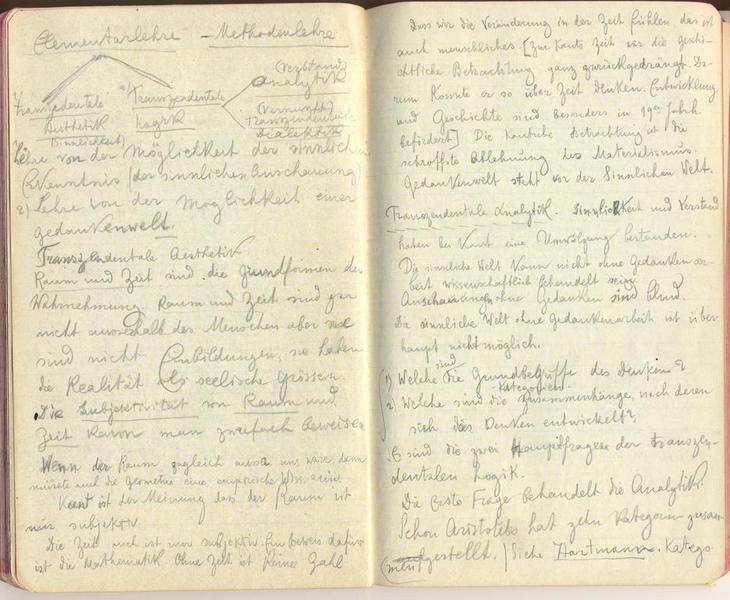 Elementarlehre - Methodenlehre
von
(Verstand)
Analytik
Transzendentale
Aesthetik
(Sinnlichkeit)
Transzendentale
Logik
(Vernunft)
Transzendentale
Dialektik
Lehre von der Möglichkeit der sinnlichen
Erkenntnis / der sinnlichen Anschauung
2) Lehre von der Möglichkeit einer
gedankenwelt.
Transzendentale Aesthetik
Raum und Zeit sind die Grundformen der
Wahrnehmung. Raum und Zeit sind gar
nicht ausserhalb des Menschen aber sie
sind nicht Einbildungen, sie haben
die Realität als seelische Grössen.
Die Subjektivität von Raum und
Zeit kann man zweifach beweisen
Wenn der Raum zugleich ausser uns wäre dann
müsste auch die Geometrie eine empirische Wiss. sein.
Kant ist der Meinung das der Raum ist
nur subjektiv.
Die Zeit auch ist nur subjektiv. Ein beweis dafür
ist die Mathematik Ohne Zeit ist keine Zahl
Dass wir die Veränderung in der Zeit fühlen das ist
auch menschliches [Zur Kants Zeit war die Geschi-
chtliche Betrachtung ganz zurückgedrängt. Da-
rum konnte er so über Zeit denken. Entwicklung
und Geschichte sind besonders in 19en Jahrh.
befördert] Die Kantsche Betrachtung ist die
schroffste Ablehnung des Materialismus.
Gedankenwelt steht vor der Sinnlichen Welt.
Transzendentale Analytik. Sinnlichkeit und Verstand
haben bei Kant eine Umwälzung bestanden.
Die sinnliche Welt kann nicht ohne Gedanken ar-
beit wissenschaftlich behandelt sein
Anschauung ohne Gedanken sind blind.
Die sinnliche Welt ohne Gedankenarbeit ist über-
haupt nicht möglich.
1) Welche sind die Grundbegriffe des Denkens?
Kategorien
2) Welche sind die Zusammenhänge, nach deren
sich das Denken entwickelt?
Es sind die zwei Hauptfragen der transzen-
dentalen Logik.
Die Erste Frage behandelt die Analytik.
Schon Aristoteles hat zehn Kategorien zusam-
(men) gestellt. / Siehe Hartmann. Katego